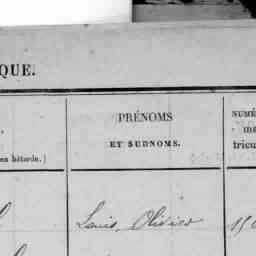 QUE.
PRÉNOMS
ET SURNOMS.
NUMÉ
tricu
en bâtarde.)
Louis Olivier